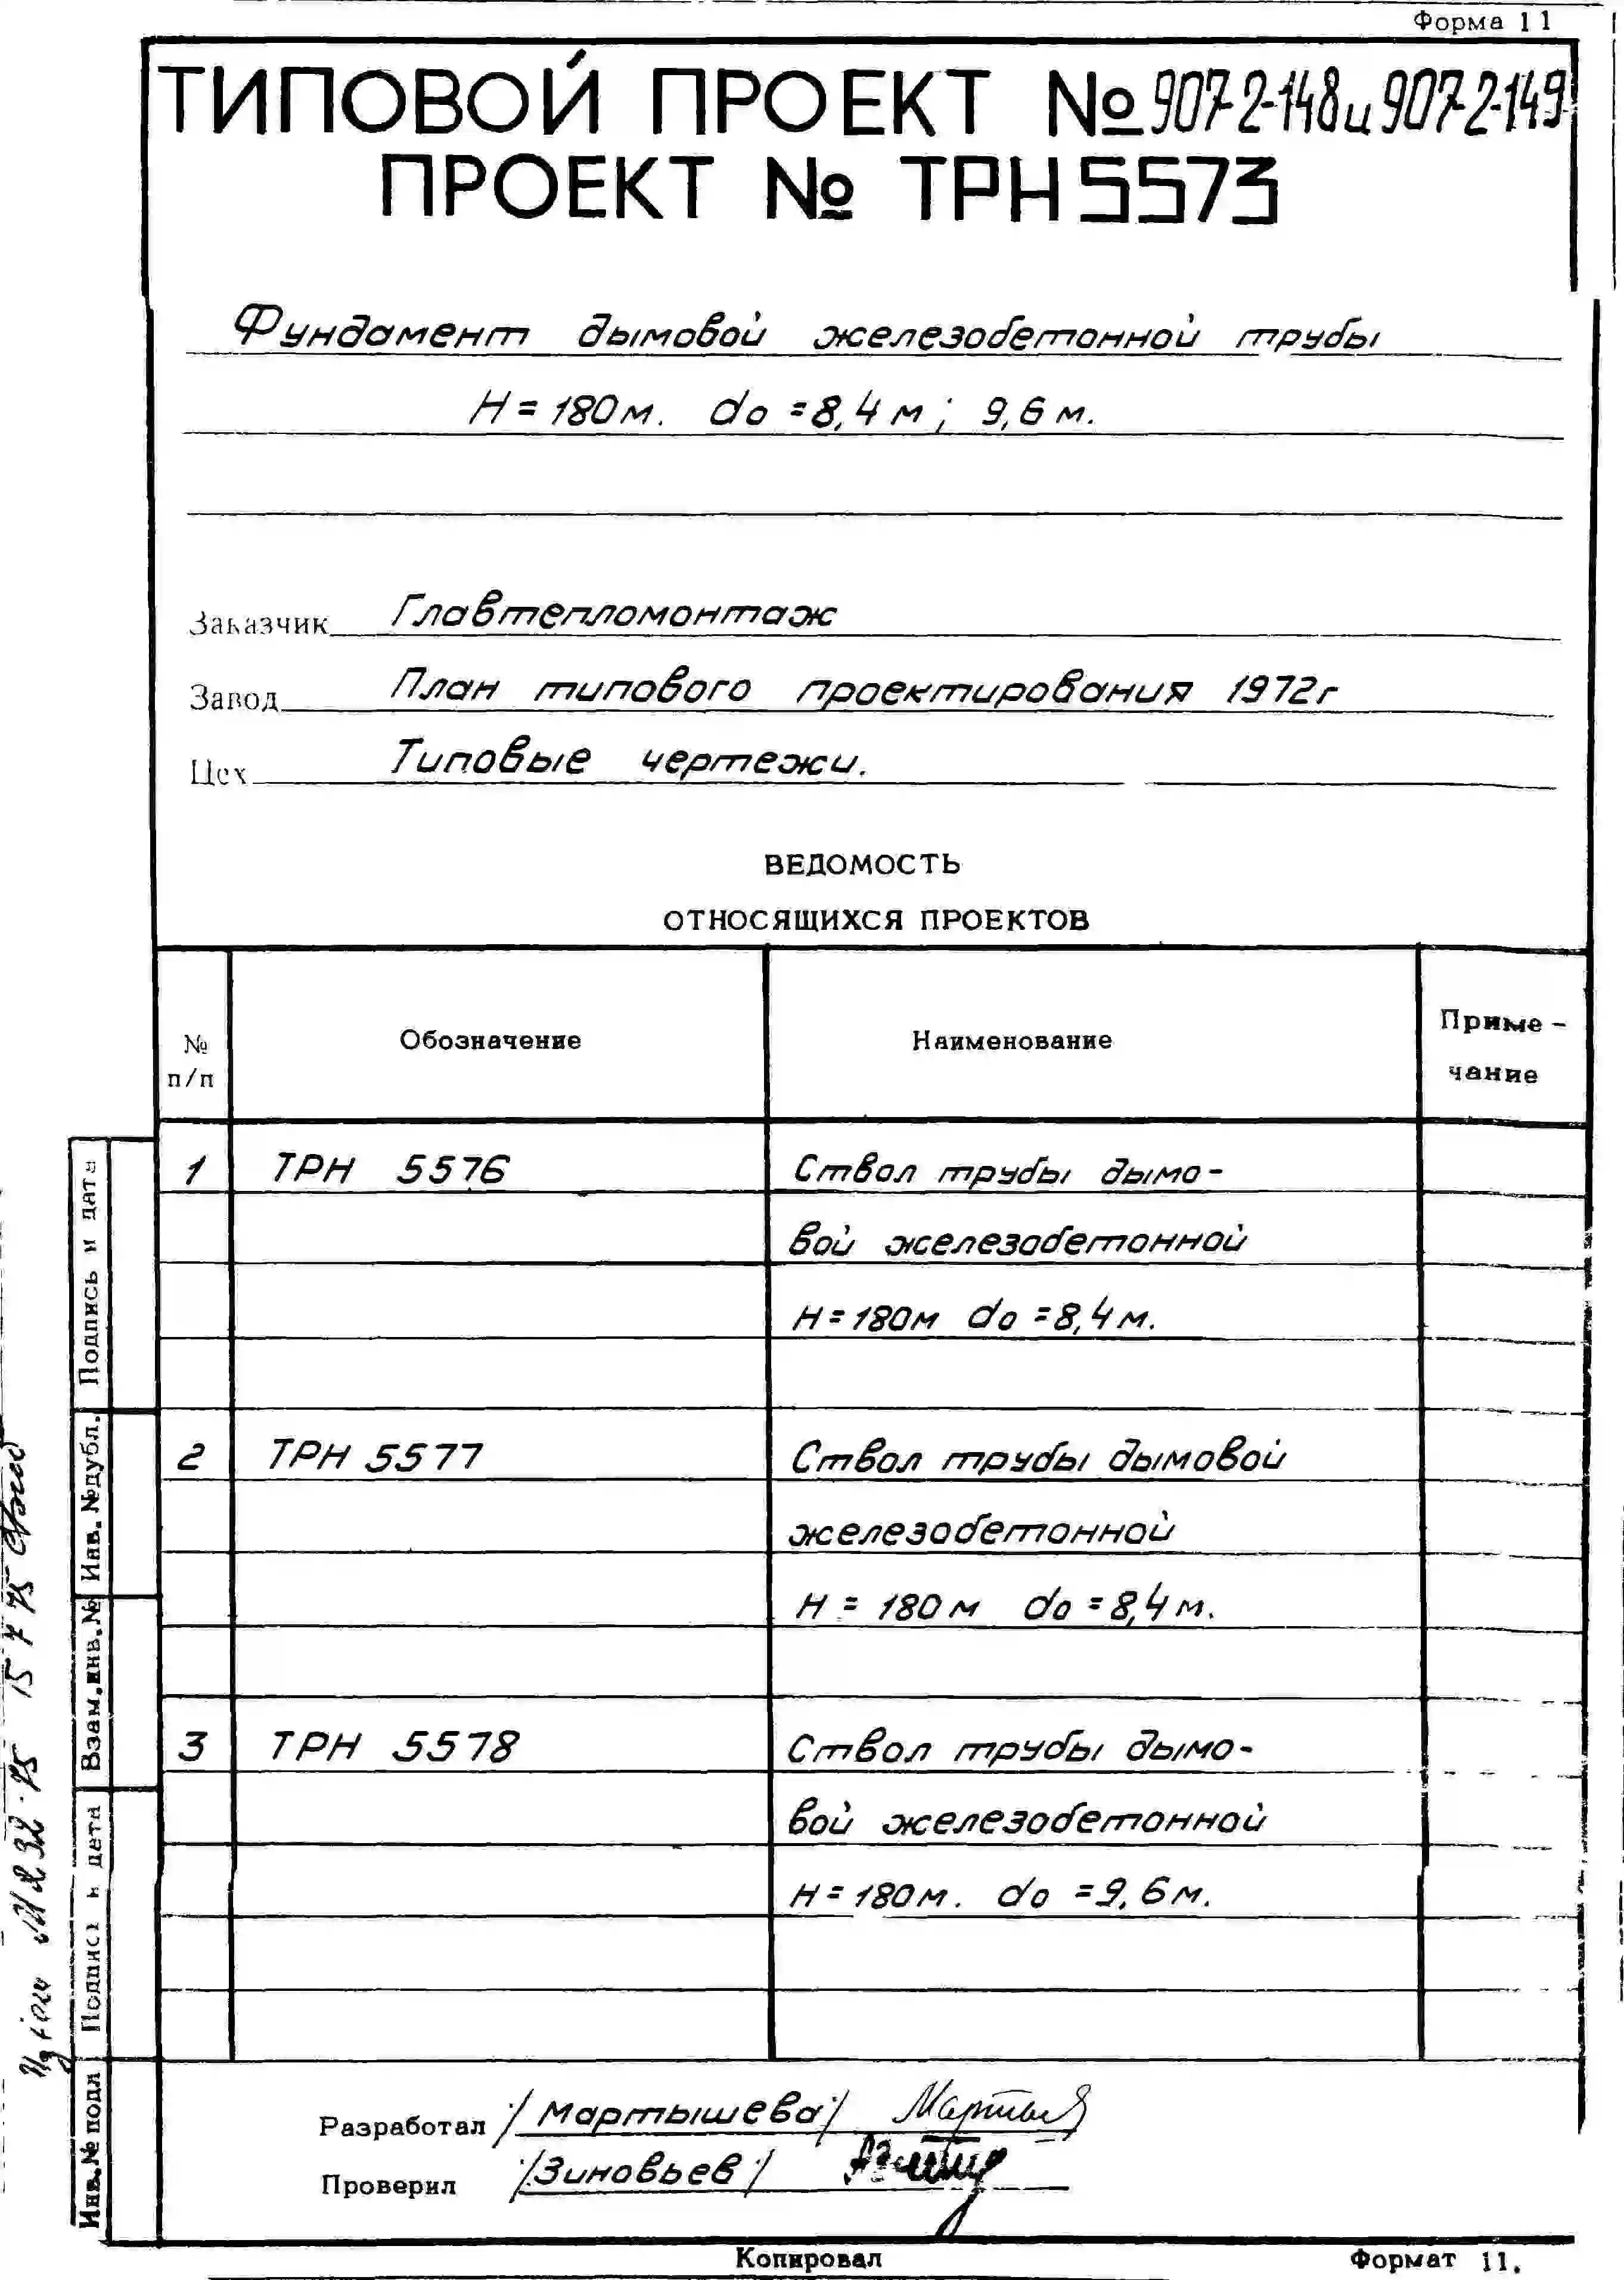 Форма 11
ТИПОВОЙ ПРОЕКТ № 907-2-148 и 907-2-149
ПРОЕКТ № ТРН 5573
Фундамент дымовой железобетонной трубы
Н = 180 м. do = 8,4 м ; 9,6 м.
Заказчик Главтепломонтаж
Завод План типового проектирования 1972г
Цех Типовые чертежи.
ВЕДОМОСТЬ
ОТНОСЯЩИХСЯ ПРОЕКТОВ
№ п/п Обозначение Наименование Приме-
чание
1 ТРН 5576 Ствол трубы дымо-
вой железобетонной
Н = 180м do = 8,4 м.
2 ТРН 5577 Ствол трубы дымовой
железобетонной
Н = 180 м do = 8,4 м.
3 ТРН 5578 Ствол трубы дымо-
вой железобетонной
Н = 180м. do = 9,6 м.
Подпись и дата
Инв. №дубл.
Взам.инв.№
Подпись и дата
Инв.№ подл
Разработал /Мартышева/
Проверил /Зиновьев/
Копировал Формат 11.